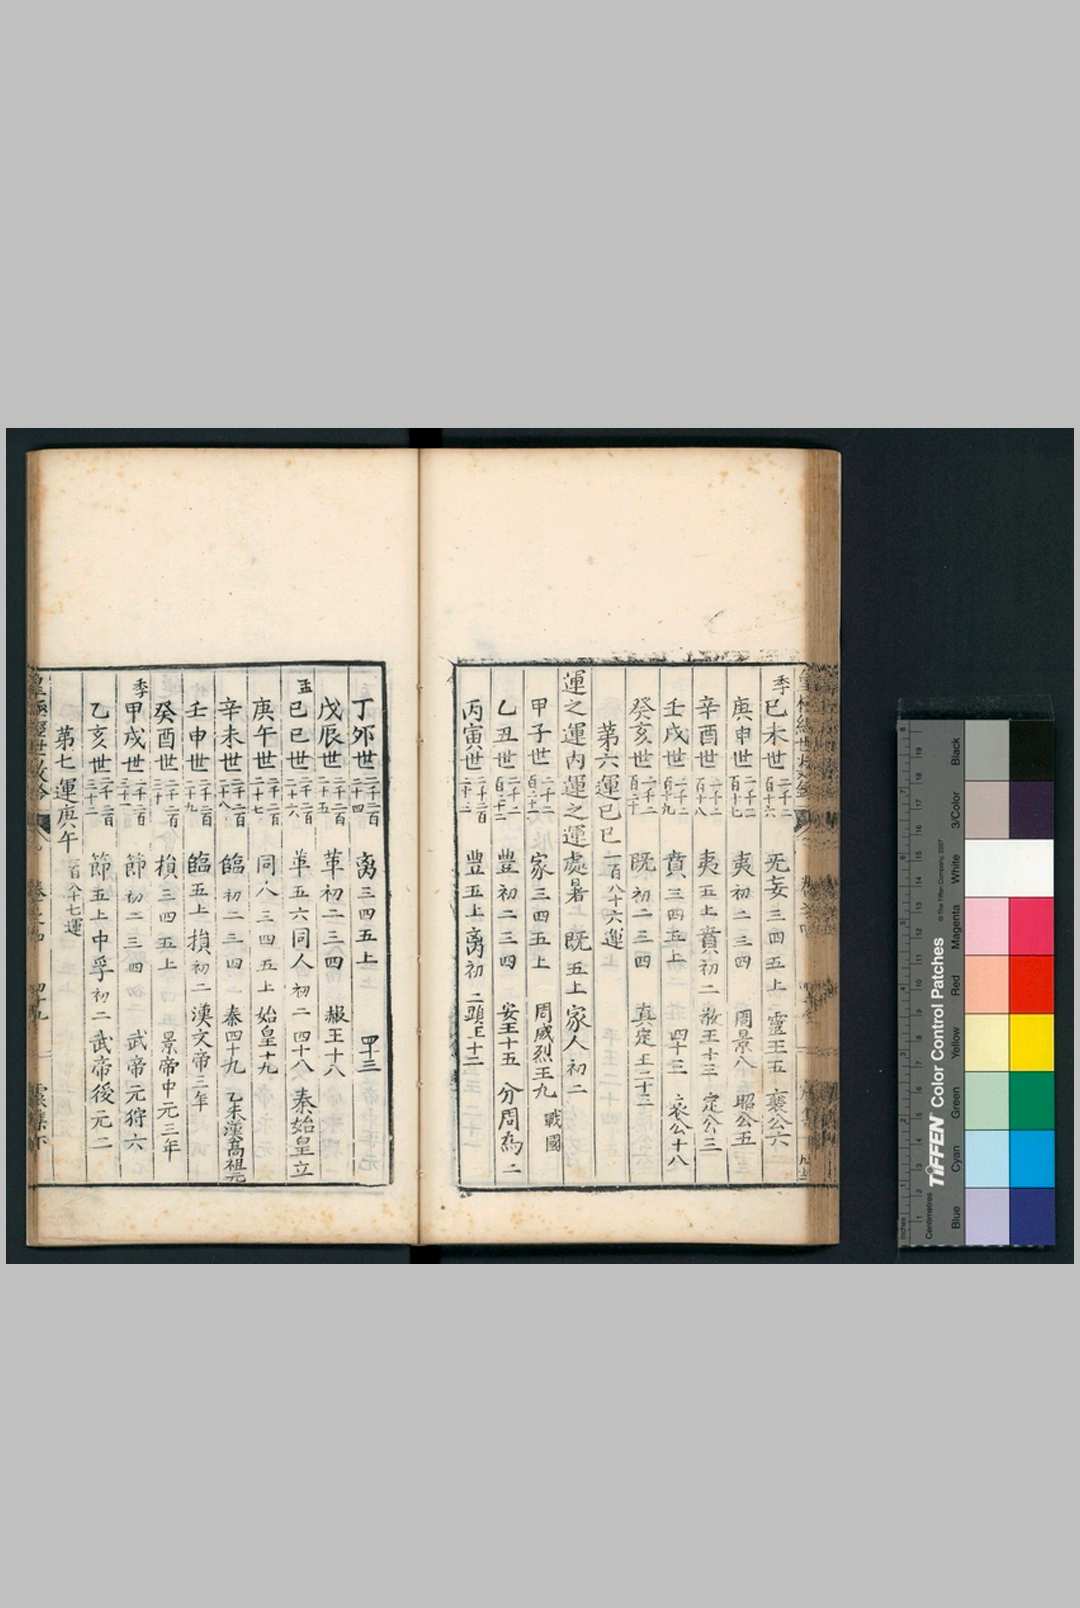 季己未世二千二百十六 无妄三四五上 靈王五 襄公六
庚申世二千二百十七 夷初二三四 周景八 昭公五
辛酉世二千二百十八 夷五上賁初二 敬王十三 定公三
壬戌世二千二百十九 賁三四五上 四十三 哀公十八
癸亥世二千二百二十 既初二三四 真定王二十二
第六運己巳一百八十六運
運之運内運之運處暑 既五上家人初二
甲子世 家三四五上 周威烈王九 戰國
乙丑世 豐初二三四 安王十五 分周為二
丙寅世 豐五上离初二 顯王十二
丁卯世二千二百二十四 离三四五上 四十三
戊辰世二千二百二十五 革初二三四 赧王十八
孟己巳世二千二百二十六 革五六同人初二 四十八 秦始皇立
庚午世二千二百二十七 同人三四五上 始皇十九
辛未世二千二百二十八 臨初二三四 秦四十九 乙未漢高祖元
壬申世二千二百二十九 臨五上損初二 漢文帝三年
癸酉世二千二百三十 損三四五上 景帝中元三年
季甲戌世二千二百三十一 節初二三四 武帝元狩六
乙亥世二千二百三十二 節五上中孚初二 武帝後元二
第七運庚午一百八十七運
卷之四 四十九
Black
3/Color
White
Magenta
Red
Yellow
Green
Cyan
Blue
TIFFEN Color Control Patches
© The Tiffen Company, 2007
Centimetres
Inches